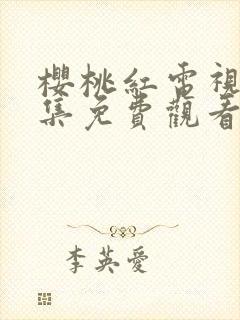 櫻桃紅電視
集免費觀看
李英愛